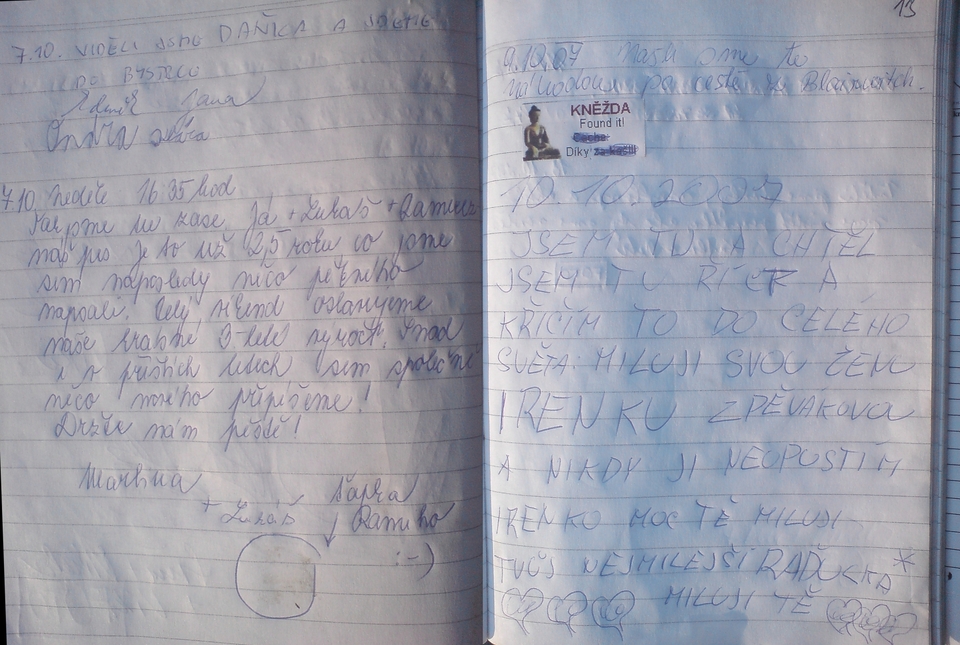 7.10. VIDĚLI JSME DAŇKA A JDEME
DO BYSTRCU
Zdeněk Jana
Ondra
7.10. neděle 16:35 hod
Tak jsme tu zase. Já + Lukáš +
náš pes. Je to už 2,5 roku co jsme
sem naposledy něco pěkného
napsali. Celý víkend oslavujeme
naše krásné 3-leté výročí. Snad
i v příštích letech sem společně
něco nového připíšeme!
Držte nám pěstě!
Martina
+ Lukáš
ťapka
:-)
13
9.10.07 Našli jsme to
náhodou po cestě
KNĚŽDA
Found it!
Díky
10.10.2007
JSEM TU A CHTĚL
JSEM TU ŘÍCT A
KŘIČÍM TO DO CELÉHO
SVĚTA: MILUJI SVOU ŽENU
IRENKU ZPĚVÁKOVOU
A NIKDY JI NEOPUSTÍM
IRENKO MOC TĚ MILUJI
TVŮJ NEJMILEJŠÍ
MILUJI TĚ